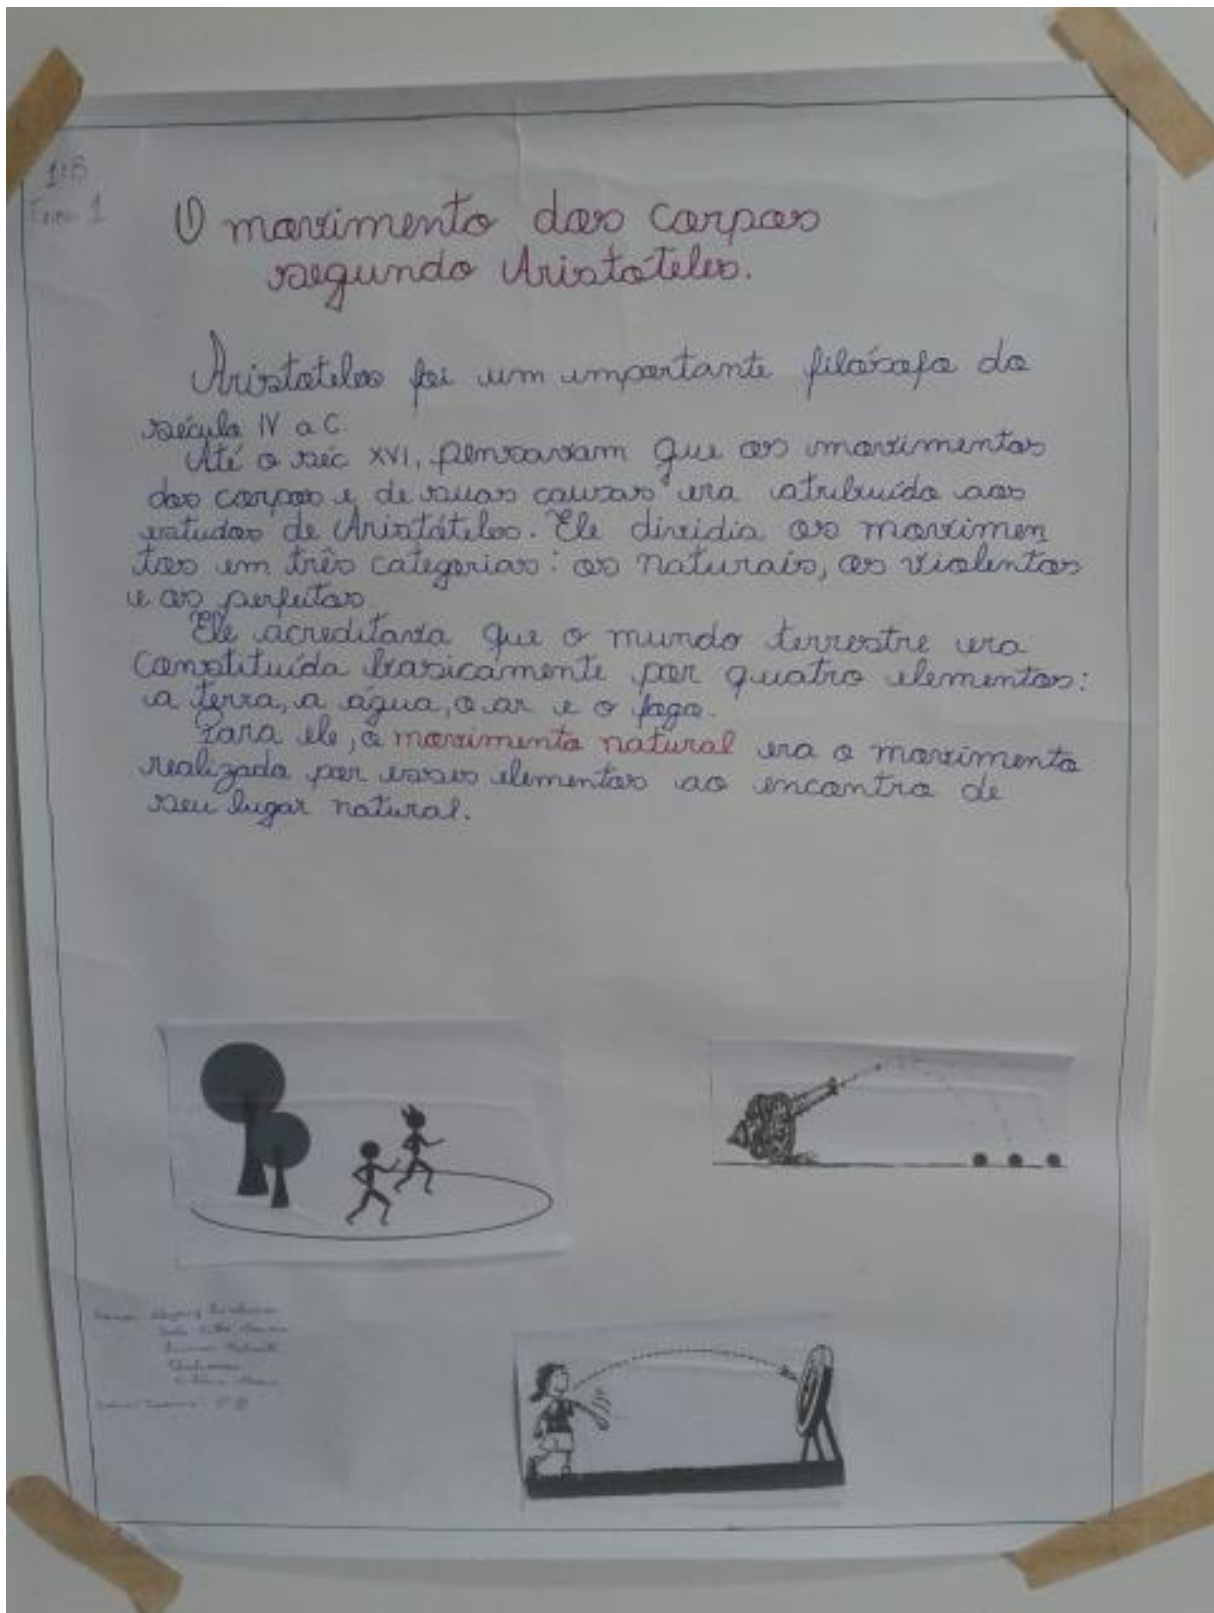 1:B
1
O movimento dos corpos
segundo Aristóteles.
Aristoteles foi um importante filósofo do
século IV a C.
Até o séc XVI, pensavam que os movimentos
dos corpos e de suas causas era atribuído aos
estudos de Aristóteles. Ele dividia os movimen
tos em três categorias: os naturais, os violentos
e os perfeitos
Ele acreditava que o mundo terrestre era
constituído basicamente por quatro elementos:
a terra, a água, o ar e o fogo.
Para ele, o movimento natural era o movimento
realizado por esses elementos ao encontro de
seu lugar natural.